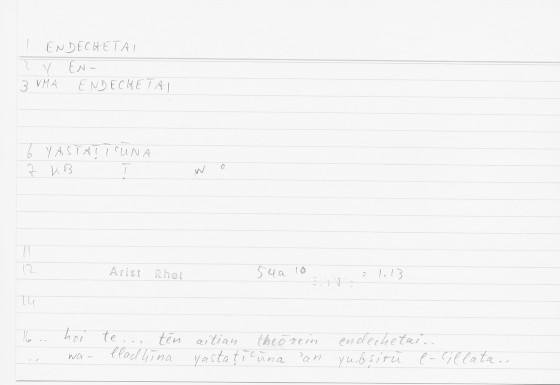 1 ENDECHETAI
2 Y EN-
3 VMA ENDECHETAI
6 YASTAṬĪʿŪNA
7 VB Ṭ W º
11
12 Arist Rhet 54a 10 : 1.13
14
16 .. hoi te... tēn aitian theōrein endechetai..
.. wa- lladhīna yastaṭīʿūna ʾan yubṣirū l-ʿillata..